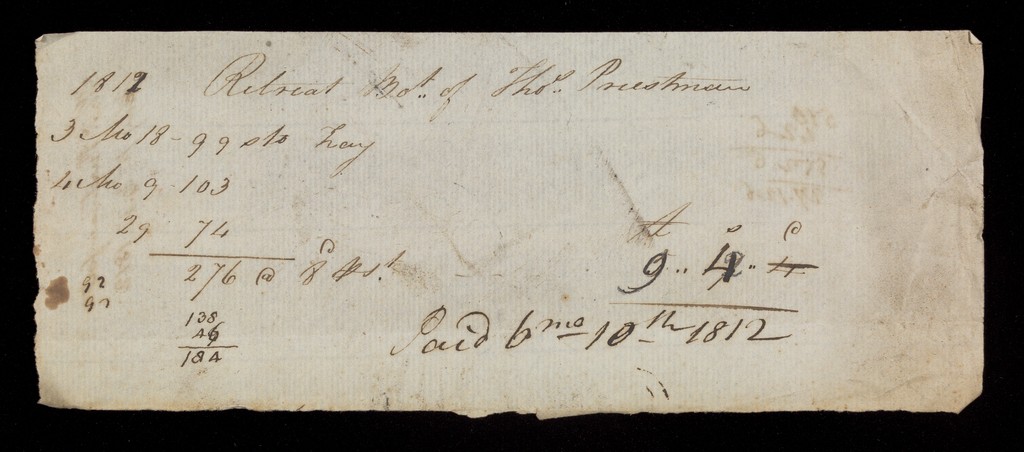 1812 Retreat Bot. of Thos. Priestman
3 Mo 18 - 99 sto Hay
4 Mo 9 103
29 74
276 @ 8d ⅌ st
£ s d
9 .. 4 .. 4
92
92
138
46
184
Paid 6mo 10th 1812